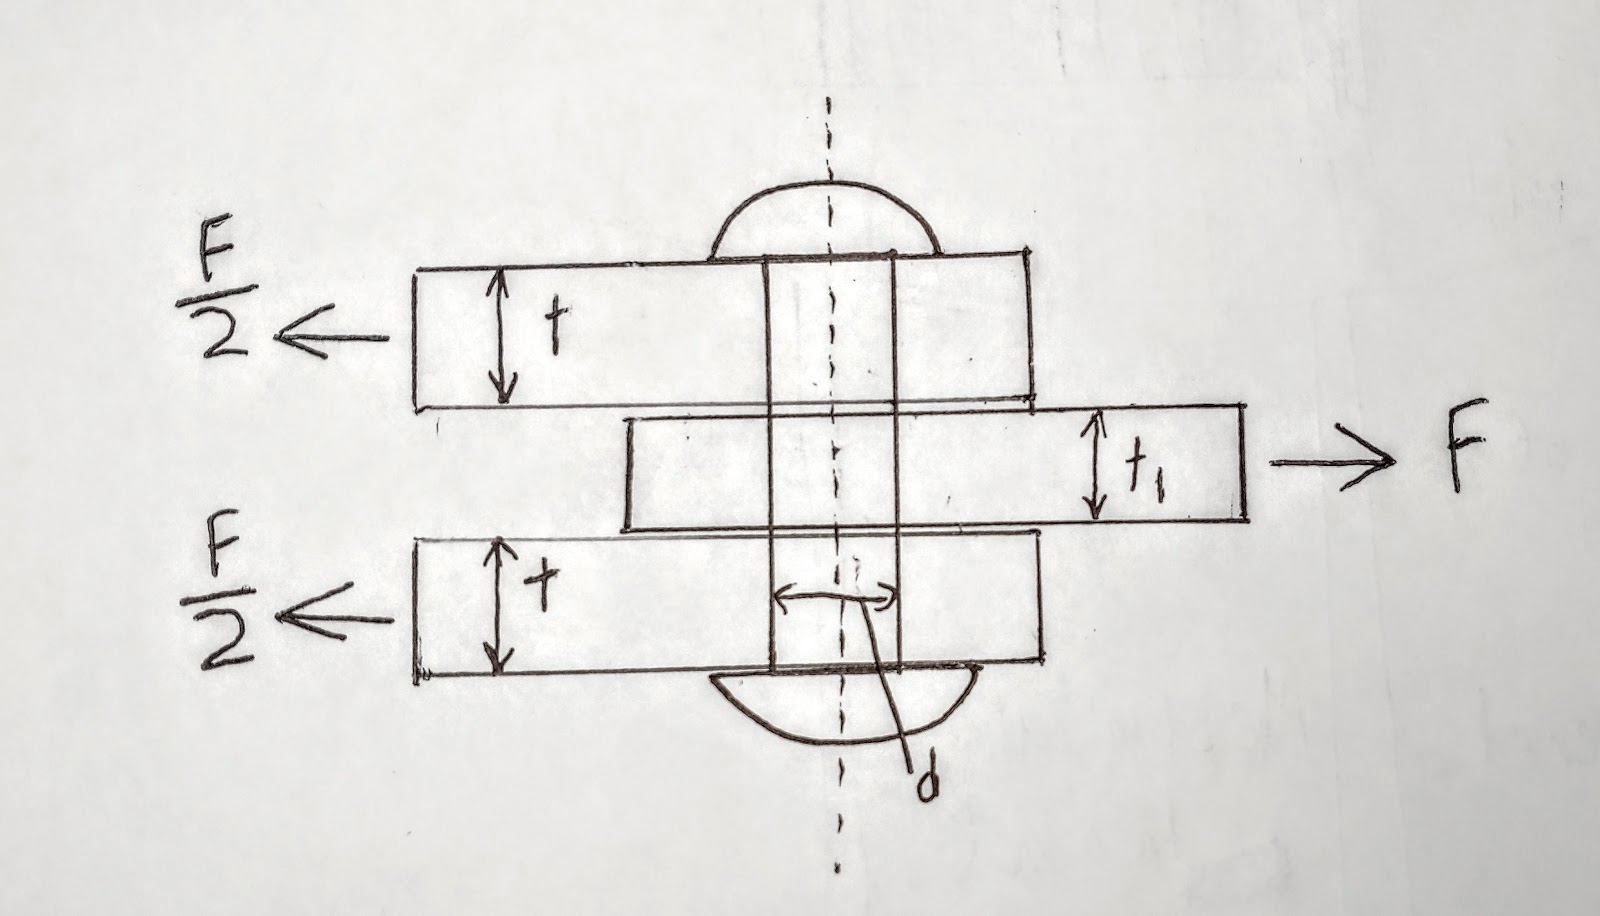 F
2
t
t₁
F
F
2
t
d